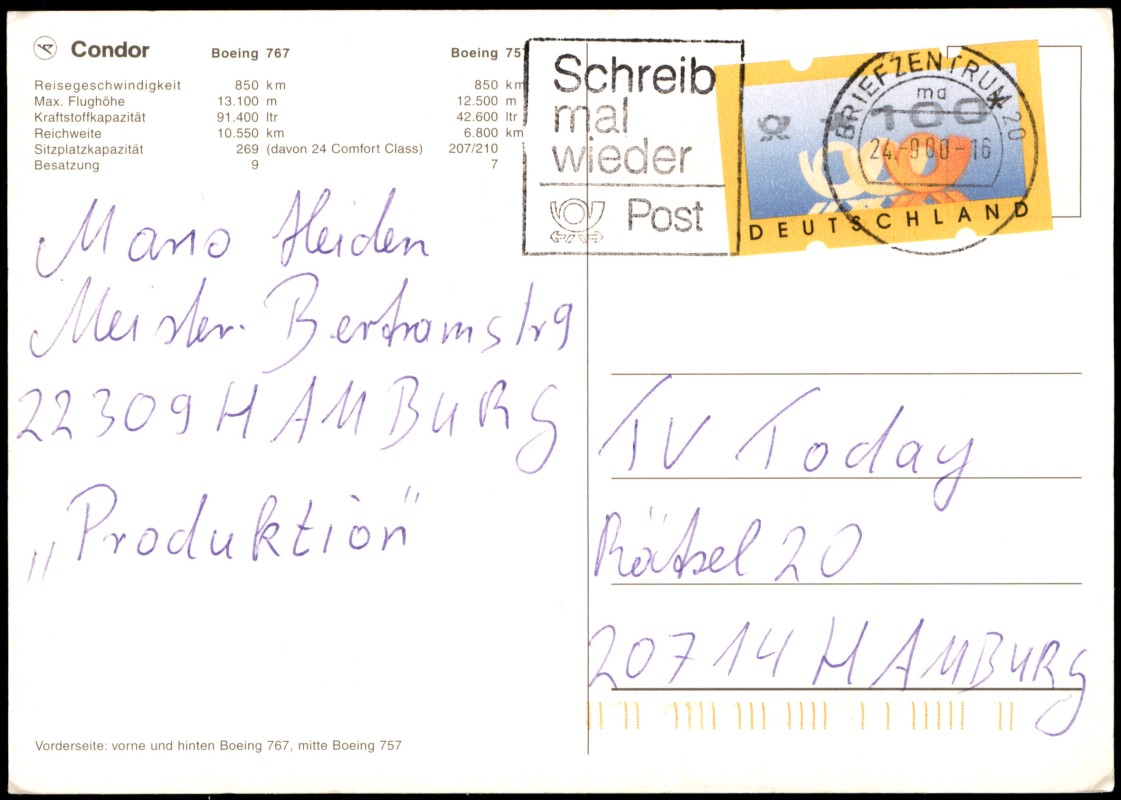 Condor Boeing 767 Boeing 757
Reisegeschwindigkeit 850 km 850 km
Max. Flughöhe 13.100 m 12.500 m
Kraftstoffkapazität 91.400 ltr 42.600 ltr
Reichweite 10.550 km 6.800 km
Sitzplatzkapazität 269 (davon 24 Comfort Class) 207/210
Besatzung 9 7
Schreib
mal
wieder
Post
BRIEFZENTRUM 20
ma
100
24.-9.00-16
DEUTSCHLAND
Mario Heiden
Meister-Bertramstr 9
22309 HAMBURG
„Produktion“
TV Today
Rätsel 20
20714 HAMBURG
Vorderseite: vorne und hinten Boeing 767, mitte Boeing 757